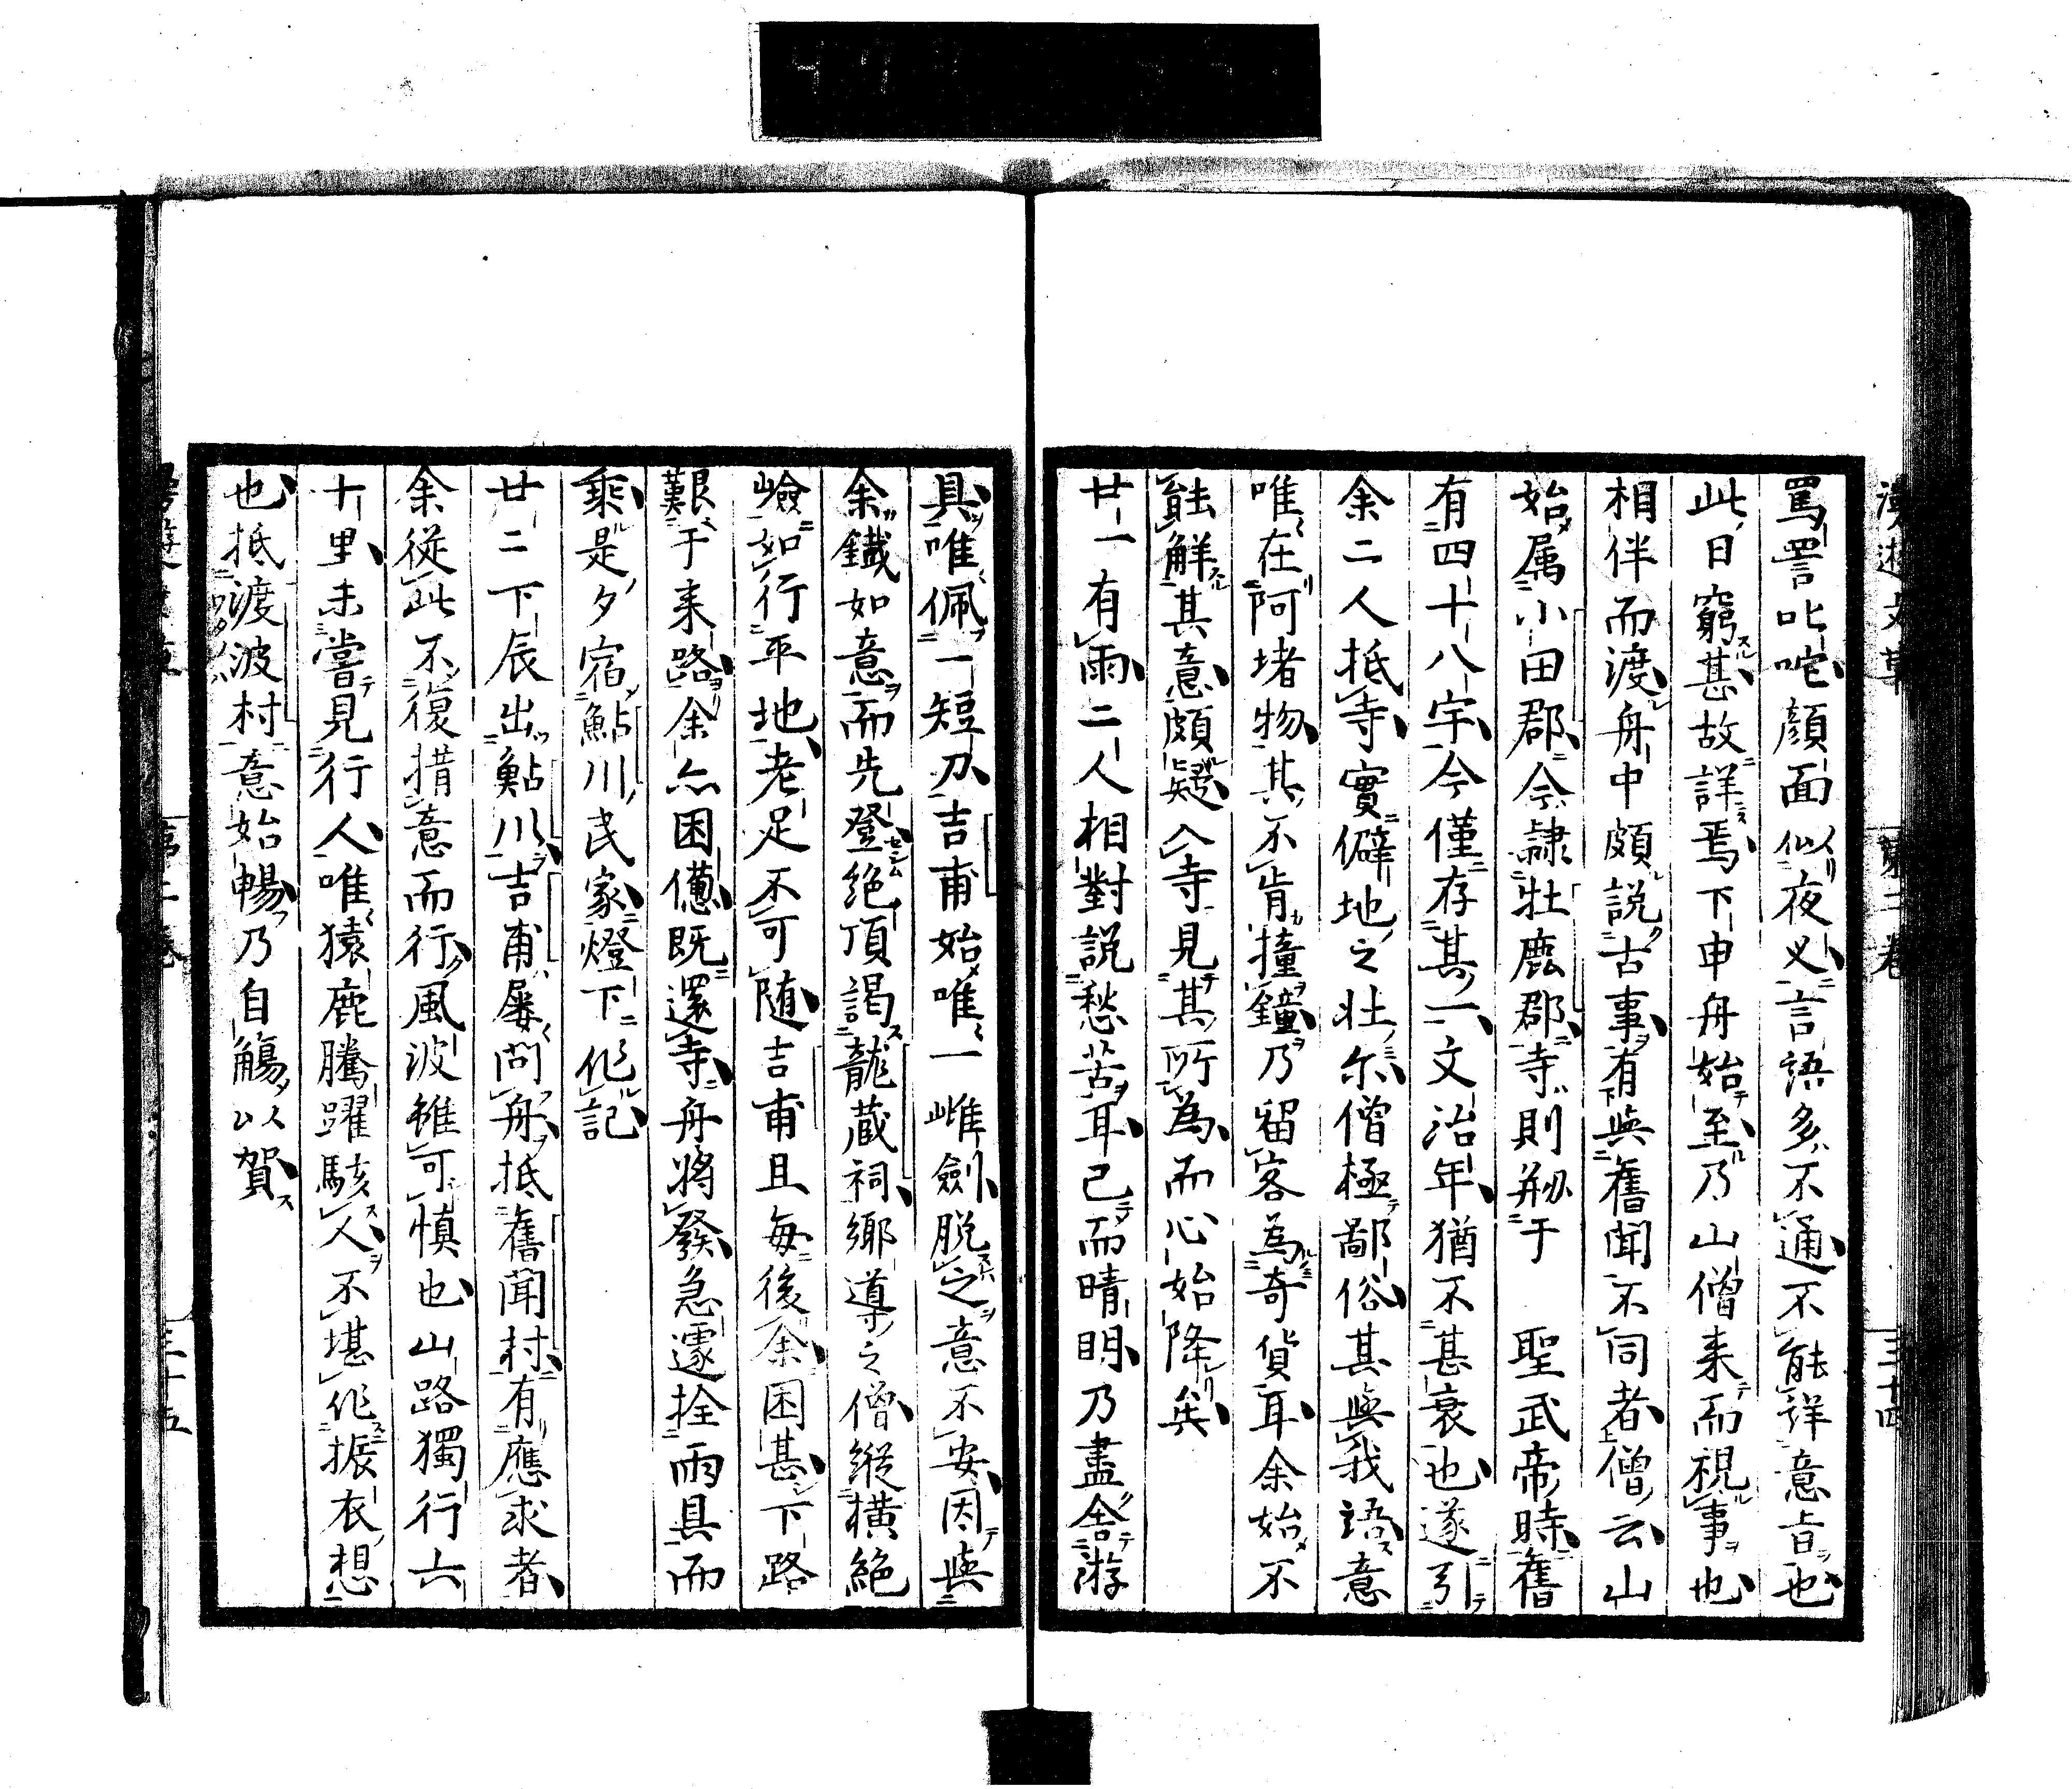 罵詈叱咤顔面似夜叉言語多不通不能詳意旨也
此日窮甚故詳焉下申舟始至乃山僧来而視事也
相伴而渡舟中頗説古事有與舊聞不同者僧云山
始属小田郡今隷牡鹿郡寺則剏于 聖武帝時舊
有四十八宇今僅存其一文治年猶不甚衰也遂引
余二人抵寺實僻地之壯尓僧極鄙俗其與我語意
唯在阿堵物其不肯撞鐘乃留客為奇貨耳余始不
能解其意頗疑入寺見其所為而心始降矣
廿一有雨二人相對説愁苦耳已而晴明乃盡舍游
具唯佩一短刀吉甫始唯一雌劍脱之意不安因與
余鐵如意而先登絶頂謁龍蔵祠郷導之僧縦横絶
嶮如行平地老足不可随吉甫且毎後余困甚下路
艱于来路余亦困憊既還寺舟將發急遽拴雨具而
乗是夕宿鮎川民家燈下作記
廿二下辰出鮎川吉甫屡問舟抵舊聞村有應求者
余從此不復措意而行風波雖可慎也山路獨行六
十里未嘗見行人唯猿鹿騰躍駭人不堪作振衣想
也抵渡波村意始暢乃自觴以賀
漫遊文草 第二卷 三十四
漫遊文草 第二卷 三十五